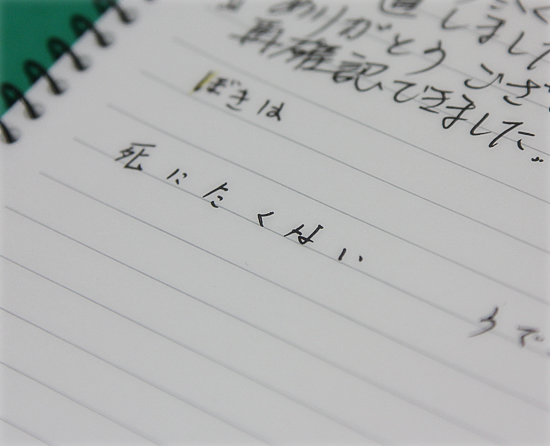 通しました
ありがとうござ
再確認できました。
ぼきは
死にたくない
うで